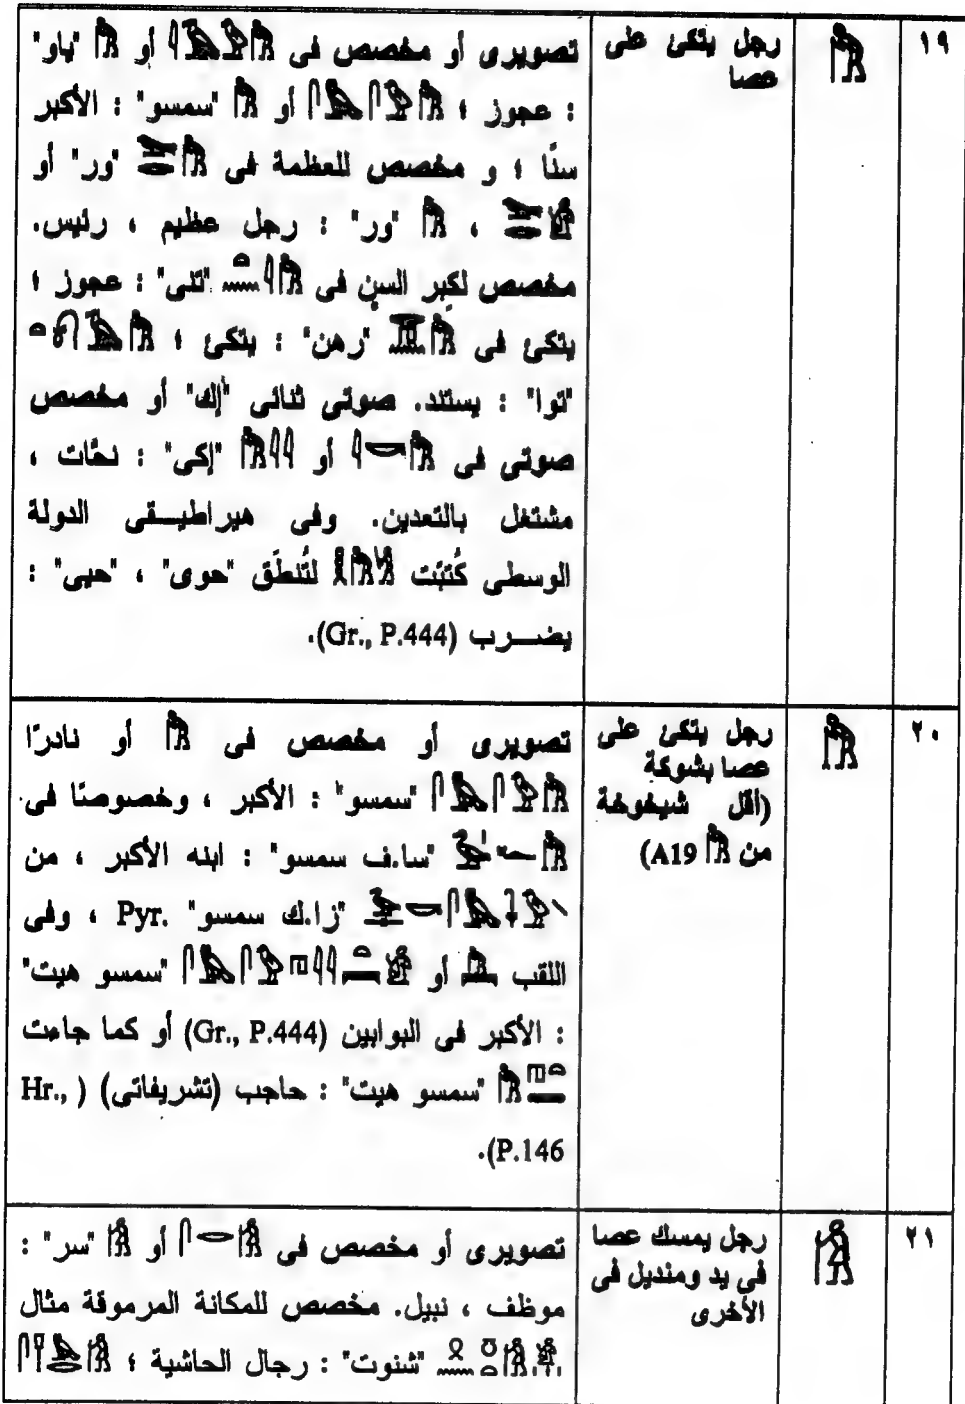 ١٩
رجل يتكئ على
عصا
تصويرى أو مخصص فى 𓀗𓅱𓄿𓇋 أو 𓀗 "ياو"
: عجوز ؛ 𓀗𓅱𓋴𓅓𓋴 أو 𓀗 "سمسو" : الأكبر
سنًا ؛ و مخصص للعظمة فى 𓀗𓂋𓅨 "ور" أو
، 𓀗 "ور" : رجل عظيم ، رئيس.
مخصص لكِبر السن فى "تنى" : عجوز ؛
يتكئ فى "رهن" : يتكئ ؛
"توا" : يستند. صوتى ثنائى "إك" أو مخصص
صوتى فى 𓀗𓎡𓇋 أو 𓀗𓇋𓇋 "إكى" : نحّات ،
مشتغل بالتعدين. وفى هيراطيــقى الدولة
الوسطى كُتبت لتُنطَق "حوى" ، "حيى" :
يضــرب (Gr., P.444).
٢٠
رجل يتكئ على
عصا بشوكة
(أقل شيخوخة
من 𓀗 A19)
تصويرى أو مخصص فى 𓀘 أو نادرًا
𓀘𓅱𓋴𓅓𓋴 "سمسو" : الأكبر ، وخصوصًا فى
"سا.ف سمسو" : ابنه الأكبر ، من
"زا.ك سمسو" Pyr. ، وفى
اللقب أو "سمسو هيت"
: الأكبر فى البوابين (Gr., P.444) أو كما جاءت
"سمسو هيت" : حاجب (تشريفاتى) (Hr.,
P.146).
٢١
رجل يمسك عصا
فى يد ومنديل فى
الأخرى
تصويرى أو مخصص فى 𓀙𓂋𓋴 أو 𓀙 "سر" :
موظف ، نبيل. مخصص للمكانة المرموقة مثال
"شنوت" : رجال الحاشية ؛